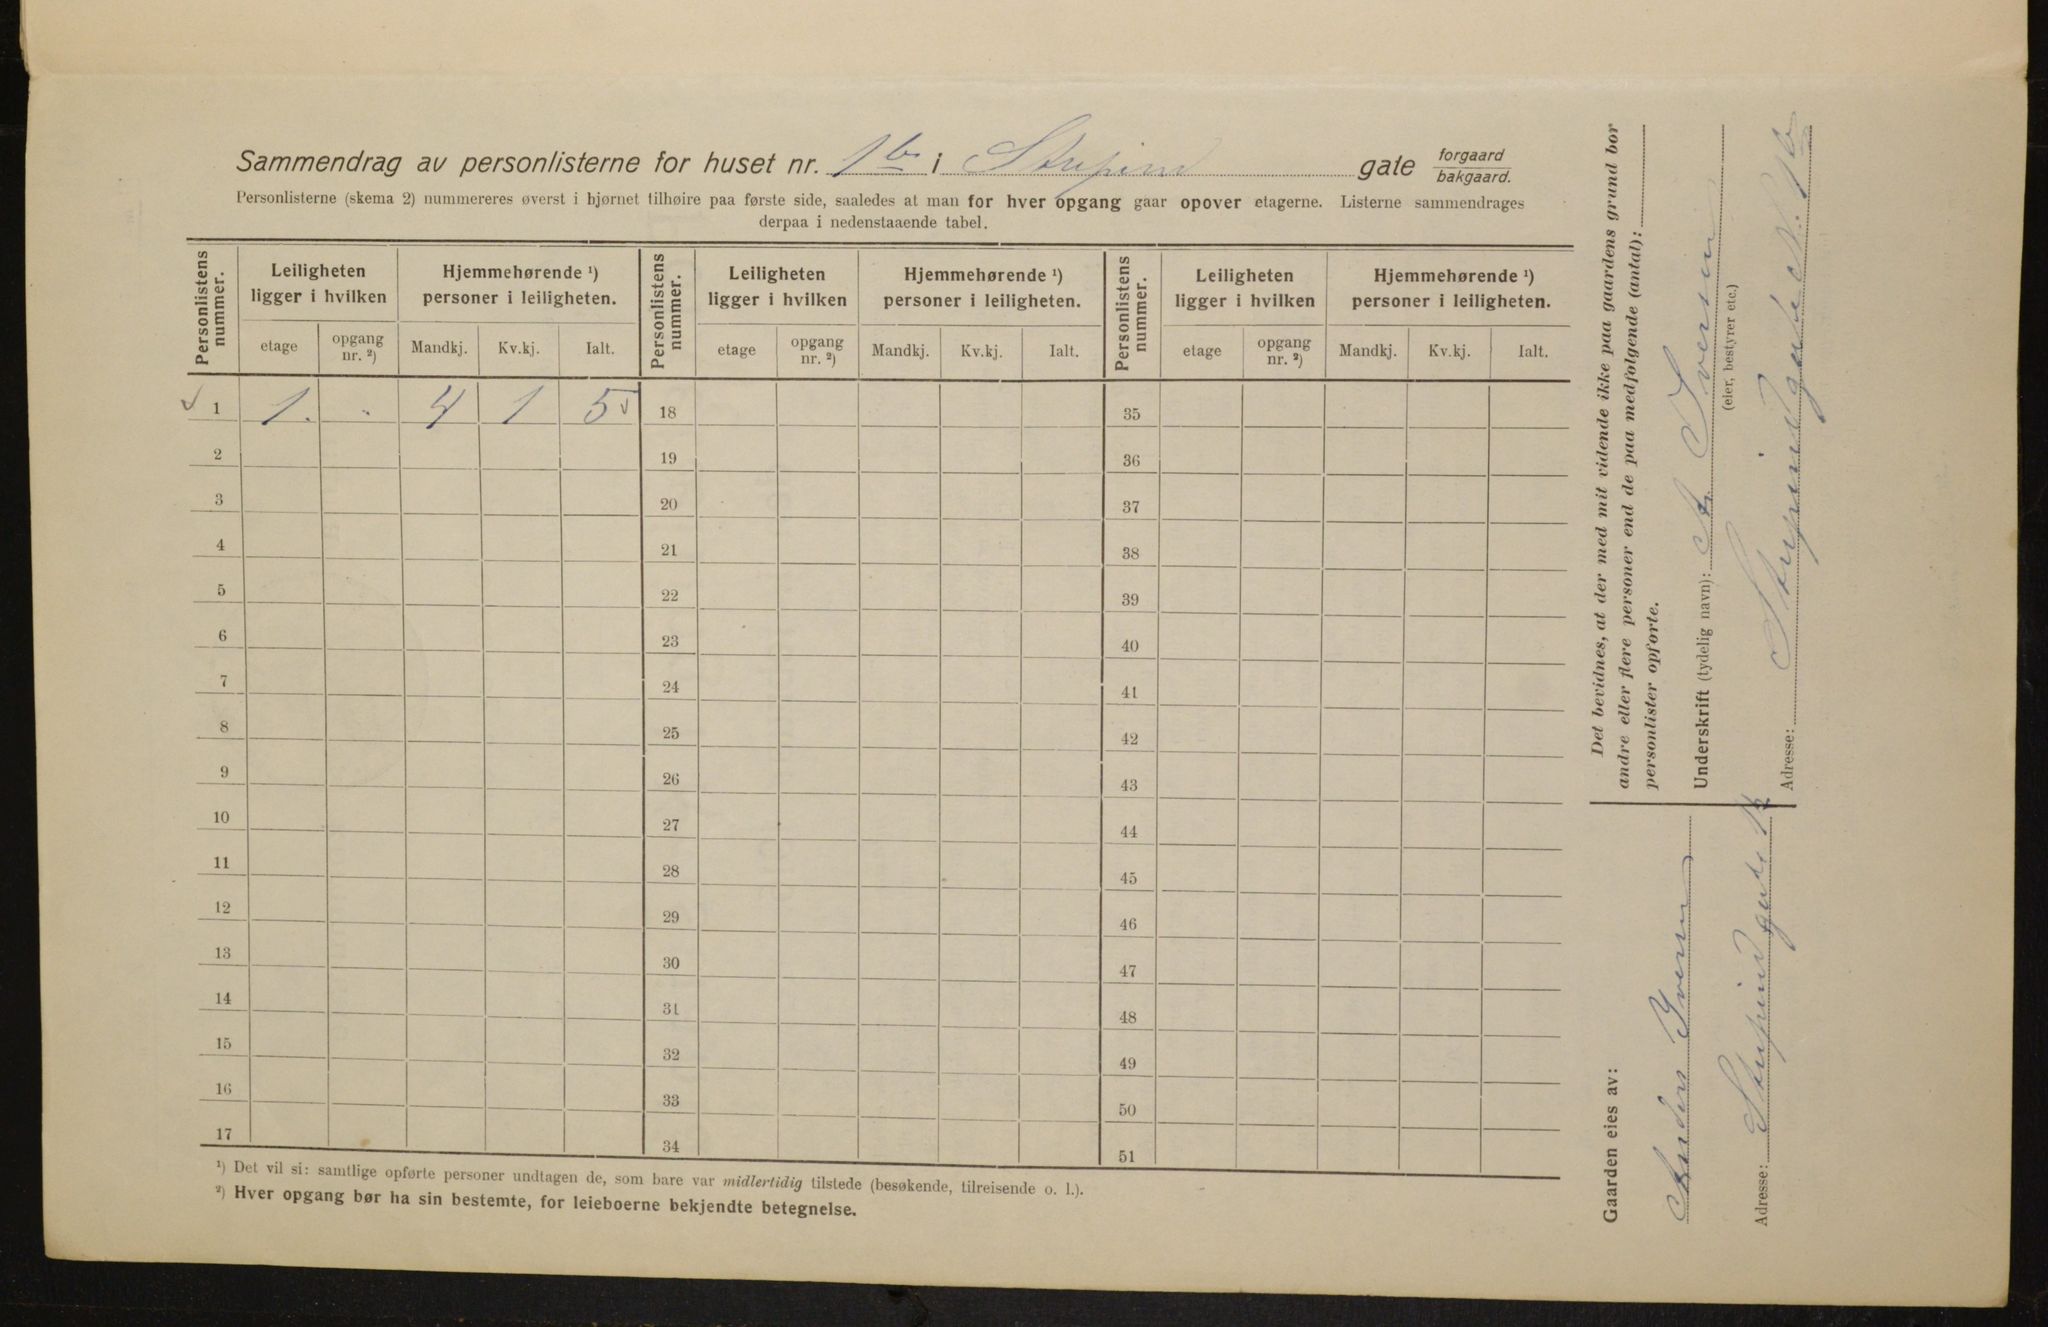 Sammendrag av personlisterne for huset nr. 1b i Stupind gate forgaard bakgaard.
Personlisterne (skema 2) nummereres øverst i hjørnet tilhøire paa første side, saaledes at man for hver opgang gaar opover etagerne. Listerne sammendrages
derpaa i nedenstaaende tabel.
Personlistens nummer. Leiligheten ligger i hvilken Hjemmehørende ¹) personer i leiligheten. Personlistens nummer. Leiligheten ligger i hvilken Hjemmehørende ¹) personer i leiligheten. Personlistens nummer. Leiligheten ligger i hvilken Hjemmehørende ¹) personer i leiligheten.
etage opgang nr. ²) Mandkj. Kv.kj. Ialt. etage opgang nr. ²) Mandkj. Kv.kj. Ialt. etage opgang nr. ²) Mandkj. Kv.kj. Ialt.
1 1. " 4 1 5 18 35
2 19 36
3 20 37
4 21 38
5 22 39
6 23 40
7 24 41
8 25 42
9 26 43
10 27 44
11 28 45
12 29 46
13 30 47
14 31 48
15 32 49
16 33 50
17 34 51
¹) Det vil si: samtlige opførte personer undtagen de, som bare var midlertidig tilstede (besøkende, tilreisende o. l.).
²) Hver opgang bør ha sin bestemte, for leieboerne bekjendte betegnelse.
Det bevidnes, at der med mit vidende ikke paa gaardens grund bor
andre eller flere personer end de paa medfølgende (antal):
personlister opførte.
Underskrift (tydelig navn): A. Iversen
(eier, bestyrer etc.)
Adresse: Stupindgate N. 1b
Gaarden eies av:
Anders Iversen
Adresse: Stupindgate 1b